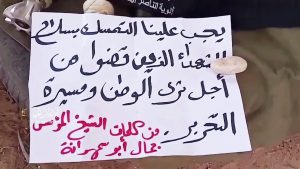 ألوية الناصر
يجب علينا التمسك بسلاح
الشهداء الذين قضوا من
أجل ثرى الوطن ومسيرة
التحرير.
من كلمات الشيخ المؤسس
جمال أبو سمهدانة